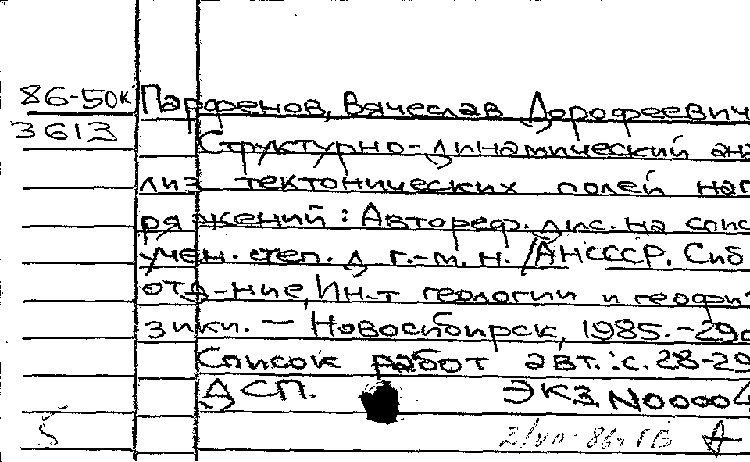 86-50к Парфенов, Вячеслав Дорофеевич
3613 Структурно-динамический ана
лиз тектонических полей нап
ряжений: Автореф. дис. на соис
учен. степ. д. г.-м. н. /АН СССР. Сиб
отд-ние, Ин-т геологии и геофи
зики. — Новосибирск, 1985. - 29с
Список работ авт.: с. 28-29
ДСП. ЭКЗ N00004
5